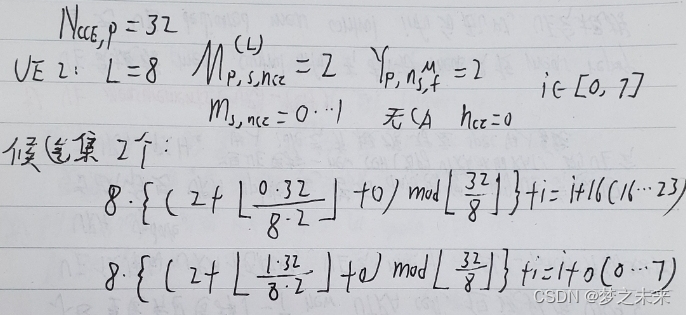 N_{CCE,p} = 32
UE 2: L=8 M_{p,s,ncz}^{(L)} = 2 Y_{p,n_{s,f}^{μ}} = 2 i∈[0,7]
m_{s,ncz} = 0…1 无CA ncz=0
候选集 2个:
8·{(2+⌊\frac{0·32}{8·2}⌋+0) mod⌊\frac{32}{8}⌋}+i=i+16(16…23)
8·{(2+⌊\frac{1·32}{8·2}⌋+0) mod⌊\frac{32}{8}⌋}+i=i+0(0…7)
CSDN @梦之未来